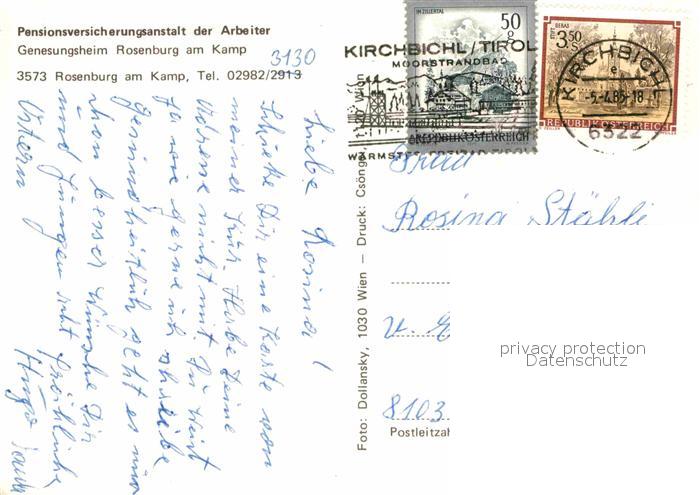 Pensionsversicherungsanstalt der Arbeiter
Genesungsheim Rosenburg am Kamp
3130
3573 Rosenburg am Kamp, Tel. 02982/2913
Liebe Rosina!
Schicke Dir eine Karte von
meiner Kur. Habe Deine
Adresse nicht mit. Du weist
ja wie gerne ich schreibe
Gesundheitlich geht es mir
schon besser Wünsche Dir
und Jungen recht fröhliche
Ostern
Hugo
IM ZILLERTAL
50 g
REPUBLIK ÖSTERREICH
3.50 S
REPUBLIK ÖSTERREICH
KIRCHBICHL/TIROL
MOORSTRANDBAD
WÄRMSTES
KIRCHBICHL
e
-5.-4.85-18
6322
Foto: Dollansky, 1030 Wien – Druck: Wien
Frau
Rosina Stähli
8103
Postleitzahl
privacy protection
Datenschutz